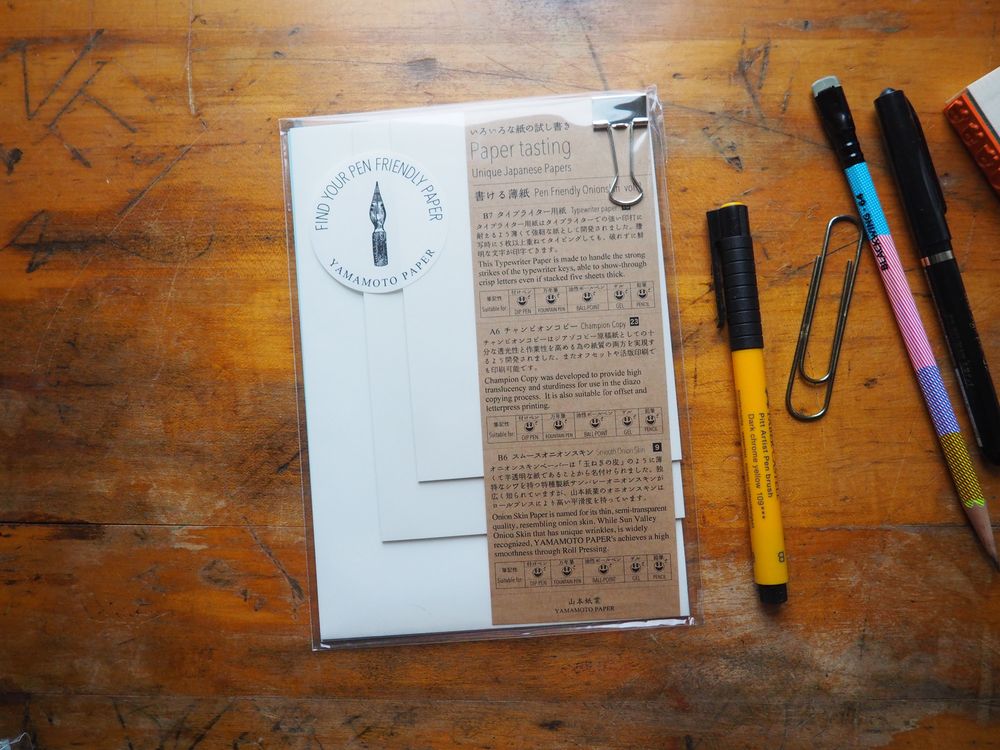 FIND YOUR PEN FRIENDLY PAPER
YAMAMOTO PAPER
いろいろな紙の試し書き
Paper tasting
Unique Japanese Papers
書ける薄紙 Pen Friendly Onionskin vol
B7 タイプライター用紙 Typewriter paper
タイプライター用紙はタイプライターでの強い印打に
耐えるよう薄くて強靭な紙として開発されました。謄
写時に5枚以上重ねてタイピングしても、破れずに鮮
明な文字が印字できます。
This Typewriter Paper is made to handle the strong
strikes of the typewriter keys, able to show-through
crisp letters even if stacked five sheets thick.
筆記性 付けペン 万年筆 油性ボールペン ゲル 鉛筆
Suitable for DIP PEN FOUNTAIN PEN BALL-POINT GEL PENCIL
A6 チャンピオンコピー Champion Copy 23
チャンピオンコピーはジアゾコピー原稿紙としての十
分な透光性と作業性を高める為の紙質の両方を実現す
るよう開発されました。またオフセットや活版印刷で
も印刷可能です。
Champion Copy was developed to provide high
translucency and sturdiness for use in the diazo
copying process. It is also suitable for offset and
letterpress printing.
筆記性 付けペン 万年筆 油性ボールペン ゲル 鉛筆
Suitable for DIP PEN FOUNTAIN PEN BALL-POINT GEL PENCIL
B6 スムースオニオンスキン Smooth Onion Skin 9
オニオンスキンペーパーは「玉ねぎの皮」のように薄
くて半透明な紙であることから名付けられました。独
特なシワを持つ特種製紙サンバレーオニオンスキンは
広く知られていますが、山本紙業のオニオンスキンは
ロールプレスにより高い平滑度を持っています。
Onion Skin Paper is named for its thin, semi-transparent
quality, resembling onion skin. While Sun Valley
Onion Skin that has unique wrinkles, is widely
recognized, YAMAMOTO PAPER's achieves a high
smoothness through Roll Pressing.
筆記性 付けペン 万年筆 油性ボールペン ゲル 鉛筆
Suitable for DIP PEN FOUNTAIN PEN BALL-POINT GEL PENCIL
山本紙業
YAMAMOTO PAPER
Pitt Artist Pen brush
Dark chrome yellow 109***
B